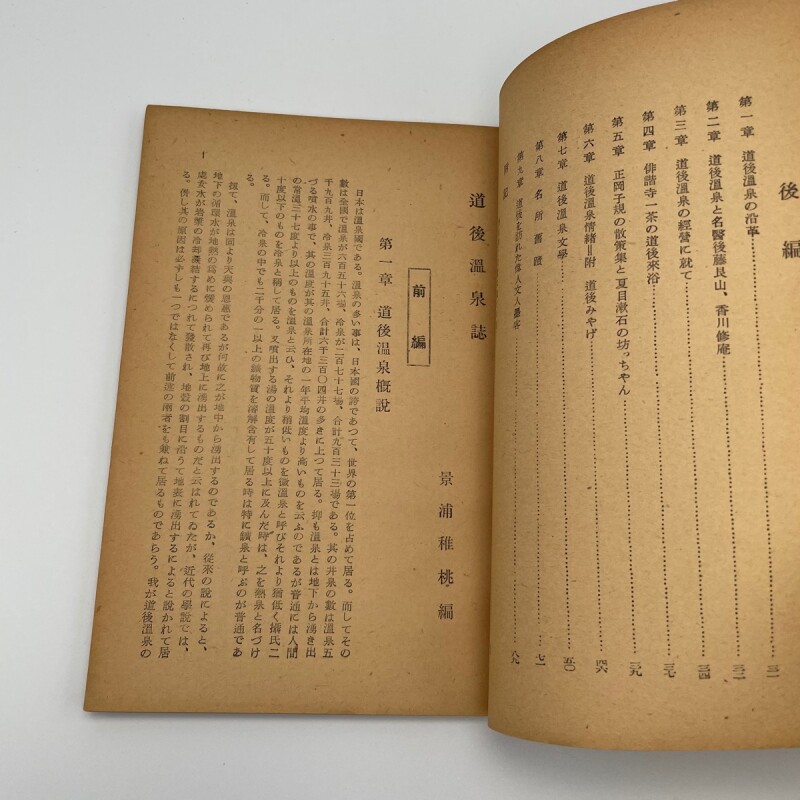 後編
第一章 道後溫泉の沿革 三一
第二章 道後溫泉と名醫後藤艮山、香川修庵 三二
第三章 道後溫泉の經營に就て 三四
第四章 俳諧寺一茶の道後來浴 三七
第五章 正岡子規の散策集と夏目漱石の坊っちやん 三九
第六章 道後溫泉情緒=附 道後みやげ 四六
第七章 道後溫泉文學 五〇
第八章 名所舊蹟 七一
第九章 道後を訪れた偉人文人墨客 八九
附記
道後溫泉誌
景浦稚桃編
前編
第一章 道後溫泉槪說
日本は溫泉國である。溫泉の多い事は、日本國の誇であつて、世界の第一位を占めて居る。而してその
數は全國で溫泉が六百五十六場、冷泉が二百七十七場、合計九百三十三場である。其の井泉の數は溫泉五
千九百九井、冷泉三百九十五井、合計六千三百〇四井の多きに上つて居る。抑も溫泉とは地下から湧き出
づる噴水の事で、其の溫度が其の溫泉所在地の一年平均溫度より高いものを云ふのであるが普通には人間
の常溫三十七度より以上のものを溫泉と云ひ、それより稍低いものを微溫泉と呼びそれより猶低く攝氏二
十度以下のものを冷泉と稱して居る。又噴出する湯の溫度が五十度以上に及んだ時は、之を熱泉と名づけ
る。而して、冷泉の中でも二千分の一以上の鑛物質を溶解含有して居る時は特に鑛泉と呼ぶのが普通であ
る。
扨て、溫泉は固より天與の恩惠であるが何故に之が地中から湧出するのであるか、從來の說によると、
地下の循環水が地熱の爲めに煖められて再び地上に湧出するものだと云はれてゐたが、近代の學說では、
處女水が岩漿の冷却凝結するにつれて發散され、地殼の割目に沿うて地表に湧出するによると說かれて居
る。併し其の原因は必ずしも一つではなくして前述の兩者をも兼ねて居るものであらう。我が道後溫泉の
1